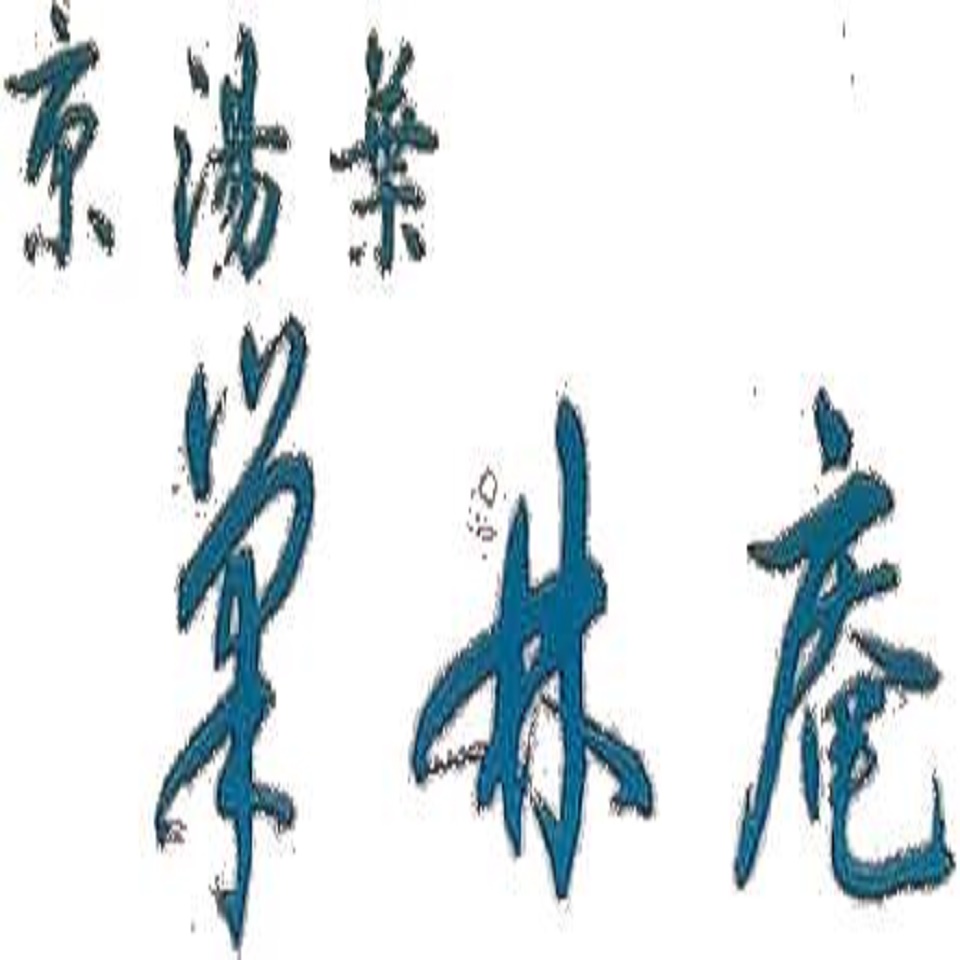 京湯葉
巣林庵